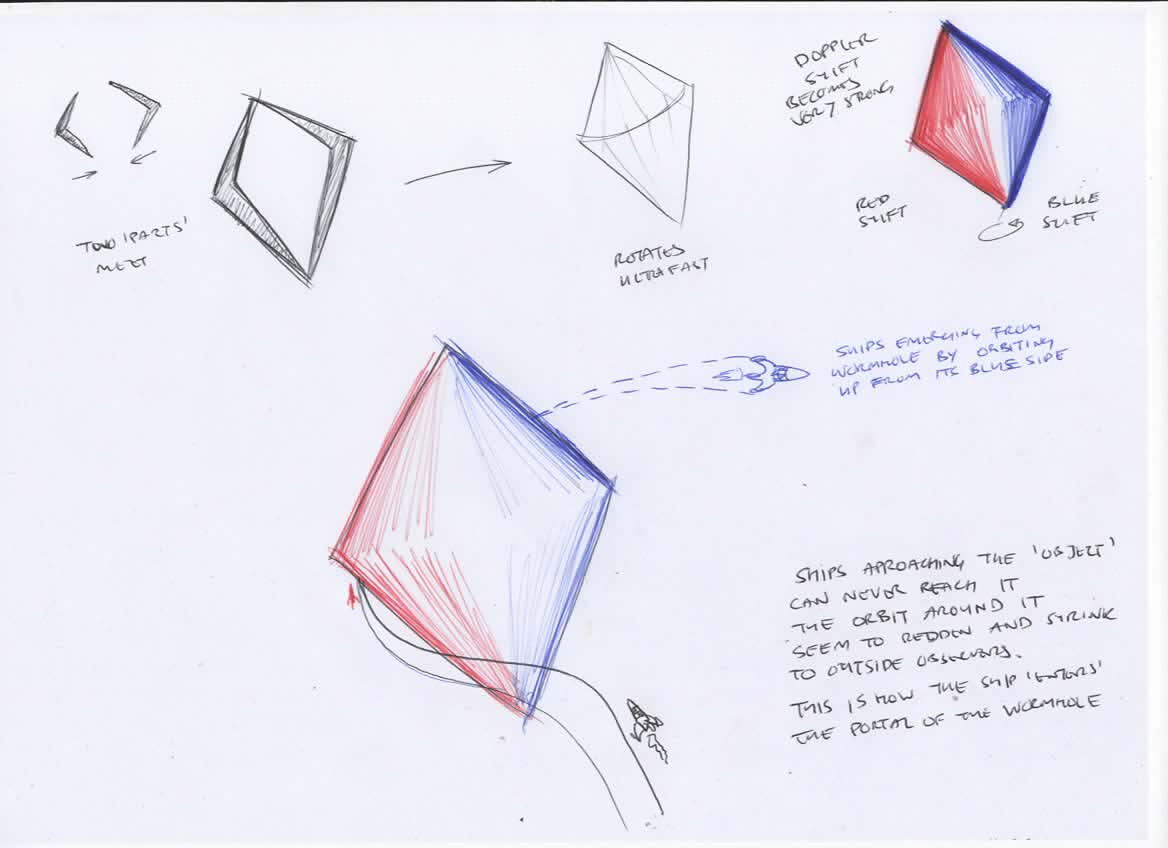 TWO 'PARTS'
MEET
ROTATES
ULTRA FAST
DOPPLER
SHIFT
BECOMES
VERY STRONG
RED
SHIFT
BLUE
SHIFT
SHIPS EMERGING FROM
WORMHOLE BY ORBITING
UP FROM ITS BLUE SIDE
SHIPS APROACHING THE 'OBJECT'
CAN NEVER REACH IT
THE ORBIT AROUND IT
SEEM TO REDDEN AND SHRINK
TO OUTSIDE OBSERVERS.
THIS IS HOW THE SHIP 'ENTERS'
THE PORTAL OF THE WORMHOLE